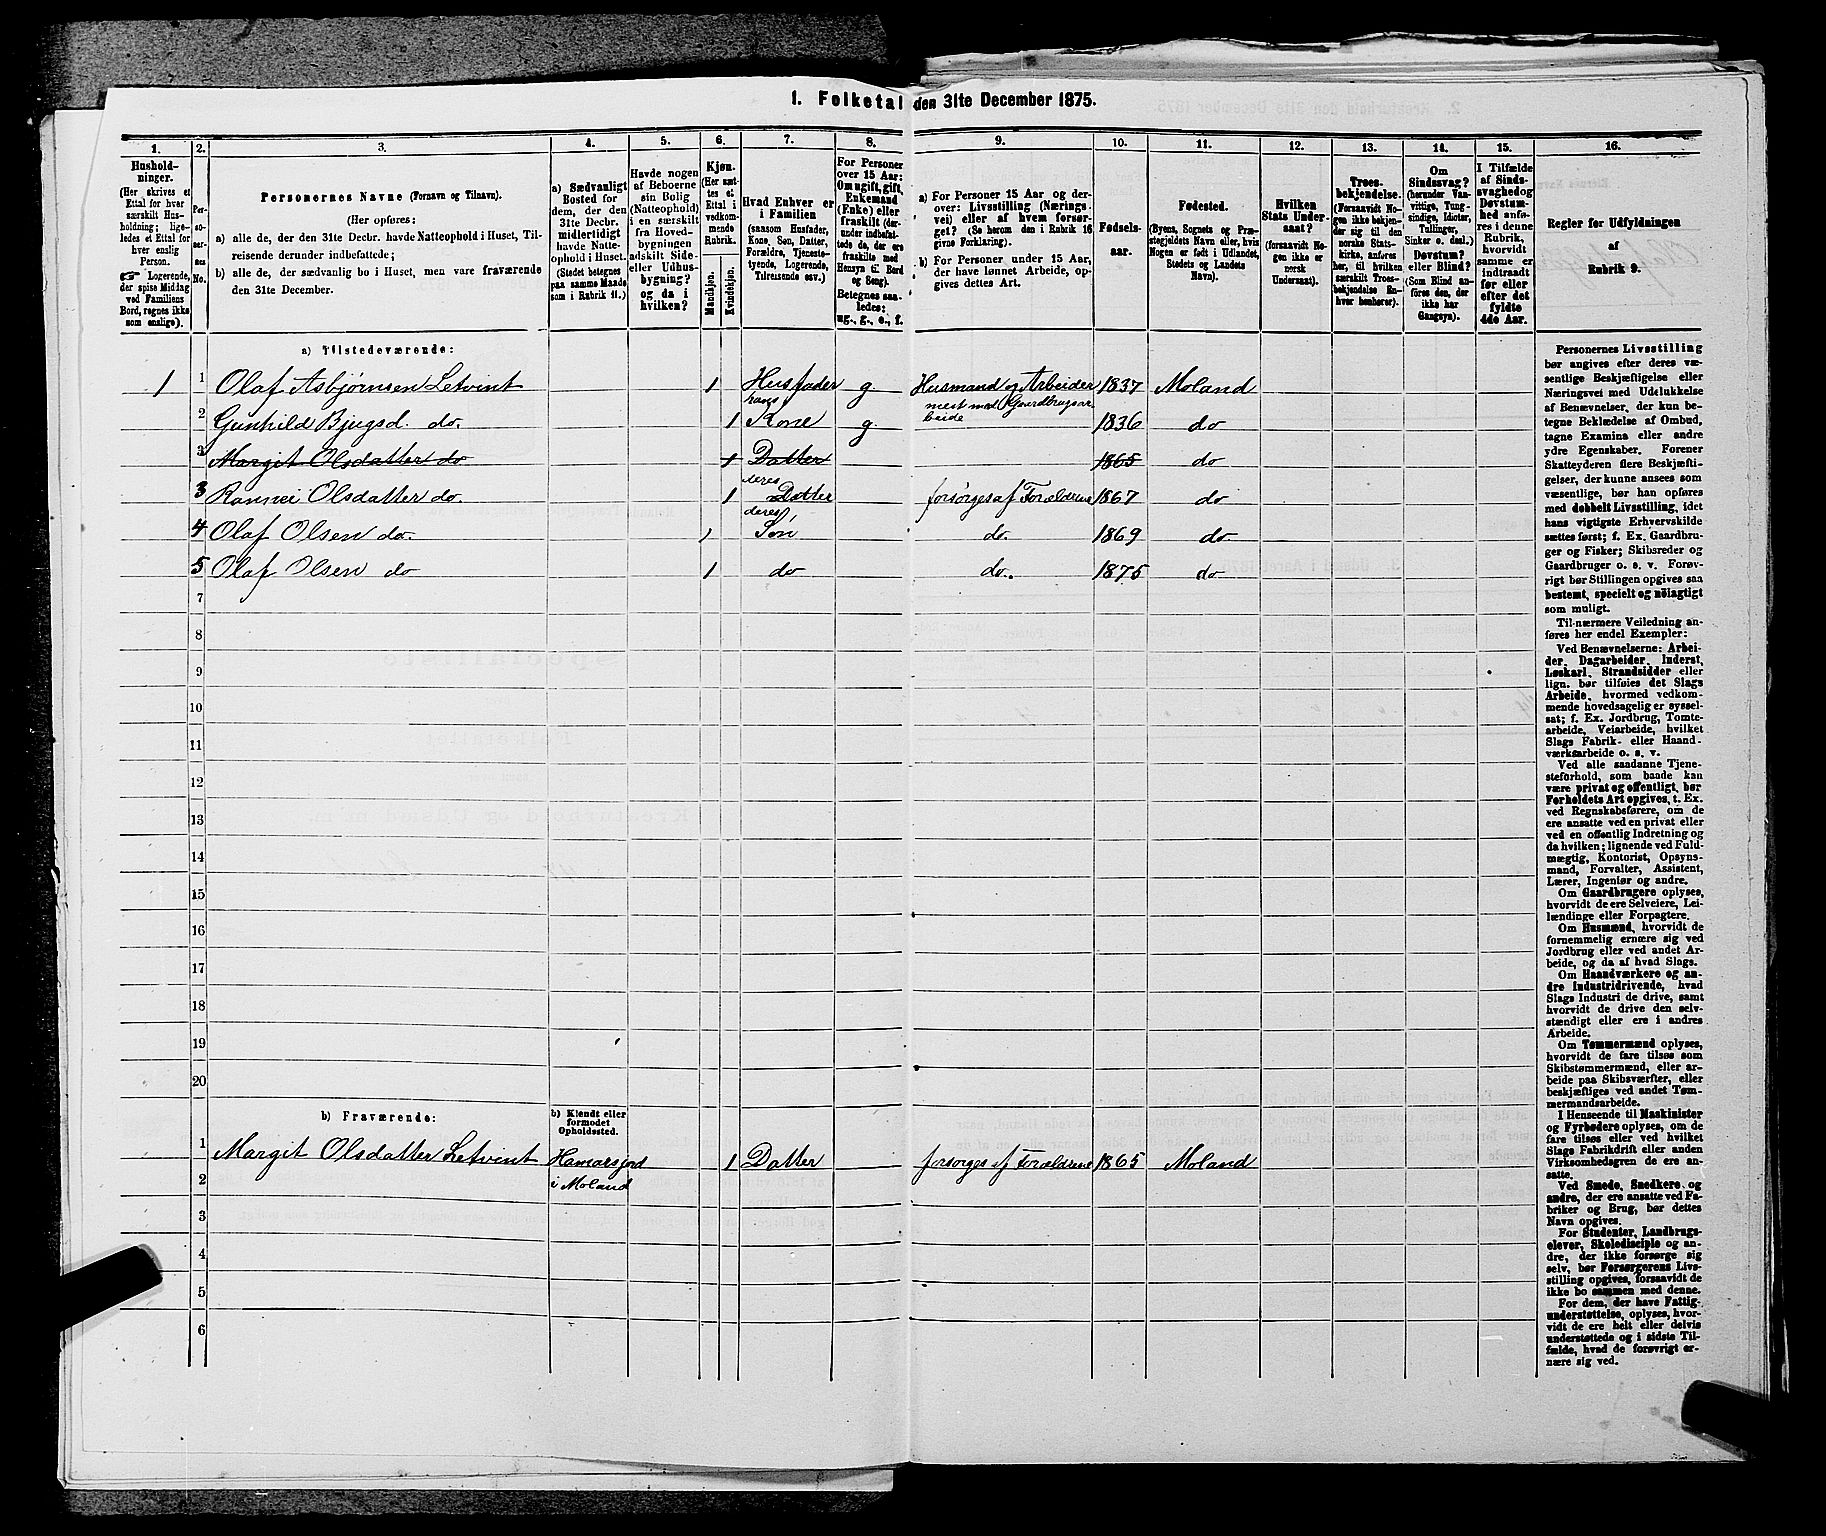 1. Folketal den 31te December 1875.
1. 2. 3. 4. 5. 6. 7. 8. 9. 10. 11. 12. 13. 14. 15. 16.
Hushold-
ninger.
(Her skrives et
Ettal for hver
særskilt Hus-
holdning; lige-
ledes et Ettal for
hver enslig
Person.
☞ Logerende,
der spise Middag
ved Familiens
Bord, regnes ikke
som enslige).
Per-
so-
ner-
nes
No.
Personernes Navne (Fornavn og Tilnavn).
(Her opføres:
a) alle de, der den 31te Decbr. havde Natteophold i Huset, Til-
reisende derunder indbefattede;
b) alle de, der sædvanlig bo i Huset, men vare fraværende
den 31te December.
a) Sædvanligt
Bosted for
dem, der den
31te Decbr.
midlertidigt
havde Natte-
ophold i Huset.
(Stedet betegnes
paa samme Maade
som i Rubrik 11.)
Havde nogen
af Beboerne
sin Bolig
(Natteophold)
i en særskilt
fra Hoved-
bygningen
adskilt Side-
eller Udhus-
bygning?
og da i
hvilken?
Kjøn.
(Her sæt-
tes et
Ettal i
vedkom-
mende
Rubrik.
Mandkjøn.
Kvindekjøn.
Hvad Enhver er
i Familien
(saasom Husfader,
Kone, Søn, Datter,
Forældre, Tjeneste-
tyende, Logerende,
Tilreisende osv.)
For Personer
over 15 Aar:
Om ugift, gift,
Enkemand
(Enke) eller
fraskilt (der-
under indbefat-
tede de, der ere
fraskilte med
Hensyn til Bord
og Seng).
Betegnes saa-
ledes:
ug., g., e., f.
a) For Personer 15 Aar og der-
over: Livsstilling (Nærings-
vei) eller af hvem forsør-
get? (Se herom den i Rubrik 16
givne Forklaring).
b) For Personer under 15 Aar,
der have lønnet Arbeide, op-
gives dettes Art.
Fødsels-
aar.
Fødested.
(Byens, Sognets og Præ-
stegjeldets Navn eller, hvis
Nogen er født i Udlandet,
Stedets og Landets
Navn).
Hvilken
Stats Under-
saat?
(forsaavidt No-
gen ikke er
norsk
Undersaat).
Troes-
bekjendelse.
(Forsaavidt No-
gen ikke bekjen-
der sig til den
norske Stats-
kirke, anføres
her, til hvilken
særskilt Troes-
bekjendelse En-
hver henhører).
Om
Sindssvag?
(herunder Van-
vittige, Tung-
sindige, Idioter,
Tullinger,
Sinker o. desl.)
Døvstum?
eller Blind?
(Som Blind an-
føres den, der
ikke har
Gangsyn).
I Tilfælde
af Sinds-
svaghed og
Døvstum-
hed anfø-
res i denne
Rubrik,
hvorvidt
samme er
indtraadt
før eller
efter det
fyldte
4de Aar.
Regler for Udfyldningen
af
Rubrik 9.
a) Tilstedeværende:
1 1 Olaf Asbjørnsen Letvint 1 Husfader g Husmand og Arbeider 1837 Moland
mest med Gaardbrugsar
beide
2 Gunhild Bjugsd. do. 1 hans Kone g. 1836 do
3 Margit Olsdatter do 1 Datter 1865 do
3 Rannei Olsdatter do. 1 deres Datter forsørges af Forældrene 1867 do
4 Olaf Olsen do. 1 deres Søn do. 1869 do
5 Olaf Olsen do 1 do do. 1875 do
7
8
9
10
11
12
13
14
15
16
17
18
19
20
b) Fraværende:
b) Kjendt eller
formodet
Opholdssted.
1 Margit Olsdatter Letvint Hamarsjord 1 Datter forsørges af Forældrene 1865 Moland
2 i Moland
3
4
5
6
Personernes Livsstilling
bør angives efter deres væ-
sentlige Beskjæftigelse eller
Næringsvei med Udelukkelse
af Benævnelser, der kun be-
tegne Beklædelse af Ombud,
tagne Examina eller andre
ydre Egenskaber. Forener
Skatteyderen flere Beskjæfti-
gelser, der kunne ansees som
væsentlige, bør han opføres
med dobbelt Livsstilling, idet
hans vigtigste Erhvervskilde
sættes først; f. Ex. Gaardbru-
ger og Fisker; Skibsreder og
Gaardbruger o. s. v. Forøv-
rigt bør Stillingen opgives saa
bestemt, specielt og nöiagtigt
som muligt.
Til nærmere Veiledning an-
føres her endel Exempler:
Ved Benævnelserne: Arbei-
der, Dagarbeider, Inderst,
Løskarl, Strandsidder eller
lign. bør tilføies det Slags
Arbeide, hvormed vedkom-
mende hovedsagelig er syssel-
sat; f. Ex. Jordbrug, Tomte-
arbeide, Veiarbeide, hvilket
Slags Fabrik- eller Haand-
værksarbeide o. s. v.
Ved alle saadanne Tjene-
steforhold, som baade kan
være privat og offentligt, bør
Forholdets Art opgives, t. Ex.
ved Regnskabsførere, om de
ere ansatte ved en privat eller
ved en offentlig Indretning og
da hvilken; lignende ved Fuld-
mægtig, Kontorist, Opsyns-
mand, Forvalter, Assistent,
Lærer, Ingeniør og andre.
Om Gaardbrugere oplyses,
hvorvidt de ere Selveiere, Lei-
lændinge eller Forpagtere.
Om Husmænd, hvorvidt de
fornemmelig ernære sig ved
Jordbrug eller ved andet Ar-
beide, og da af hvad Slags.
Om Haandværkere og an-
dre Industridrivende, hvad
Slags Industri de drive, samt
hvorvidt de drive den selv-
stændigt eller ere i andres
Arbeide.
Om Tømmermænd oplyses,
hvorvidt de fare tilsøs som
Skibstømmermænd, eller ar-
beide paa Skibsværfter, eller
beskjæftiges ved andet Tøm-
mermandsarbeide.
I Henseende til Maskinister
og Fyrbødere oplyses, om de
fare tilsøs eller ved hvilket
Slags Fabrikdrift eller anden
Virksomhedsgren de ere an-
satte.
Ved Smede, Snedkere og
andre, der ere ansatte ved Fa-
briker og Brug, bør dettes
Navn opgives.
For Studenter, Landbrugs-
elever, Skoledisciple og an-
dre, der ikke forsørge sig
selv, bør Forsørgerens Livs-
stilling opgives, forsaavidt de
ikke bo sammen med denne.
For dem, der have Fattig-
understøttelse, oplyses, hvor-
vidt de ere helt eller delvis
understøttede og i sidste Til-
fælde, hvad de forøvrigt er-
nære sig ved.